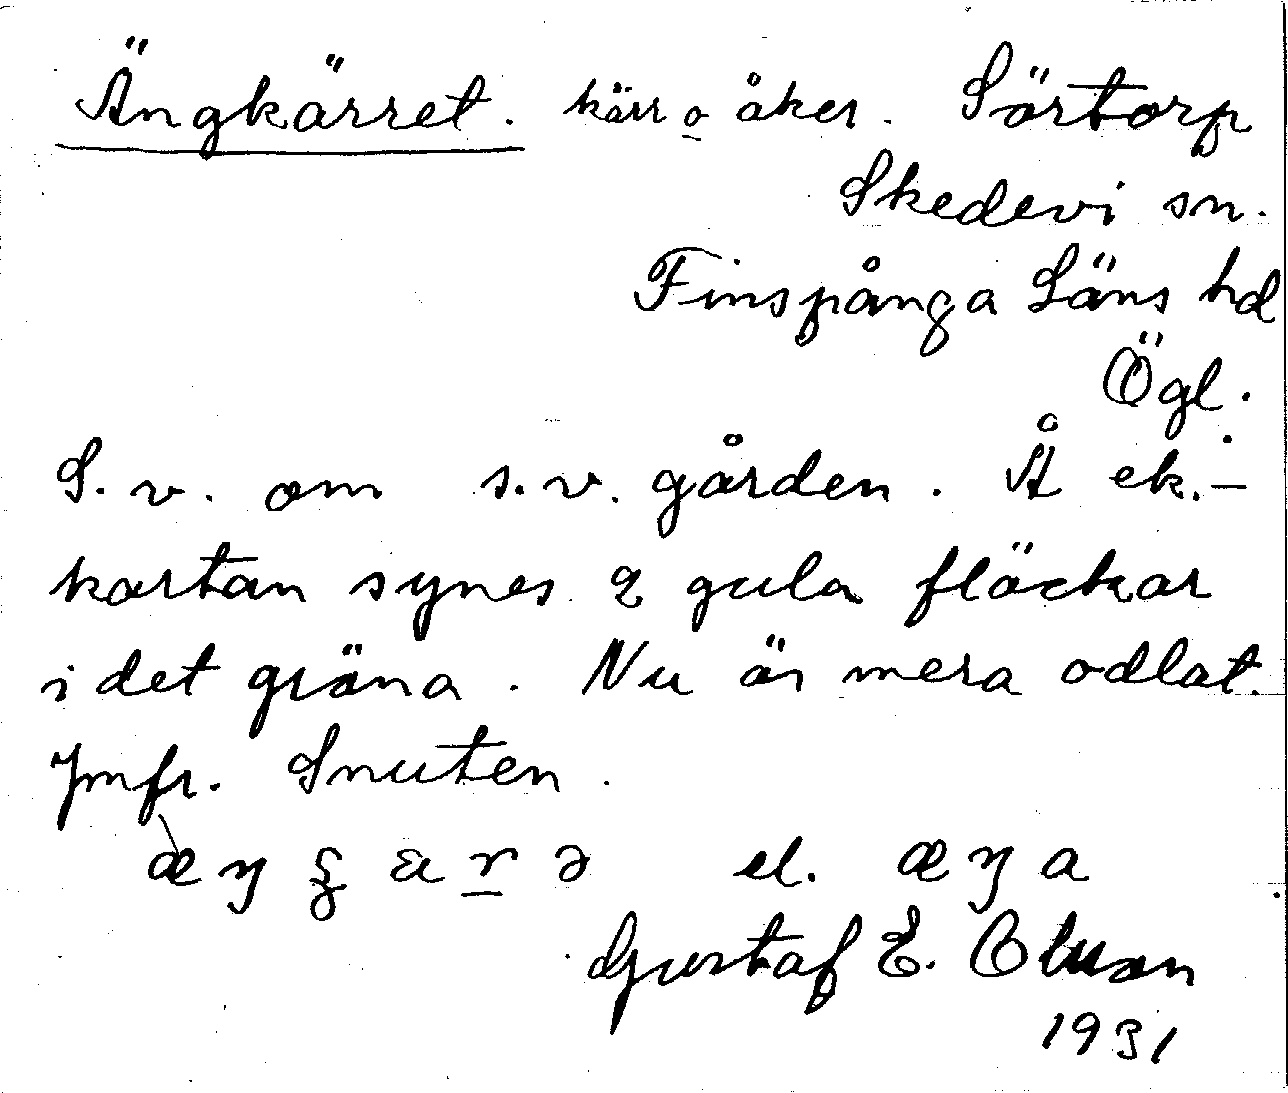 Ängkärret. kärr o åker. Sörtorp
Skedevi sn.
Finspånga Läns hd
Ögl.
S.v. om s.v. gården. Å ek.-
kartan synes 2 gula fläckar
i det gröna. Nu är mera odlat.
Jmfr. Snuten.
el.
Gustaf E. Olsson
1931